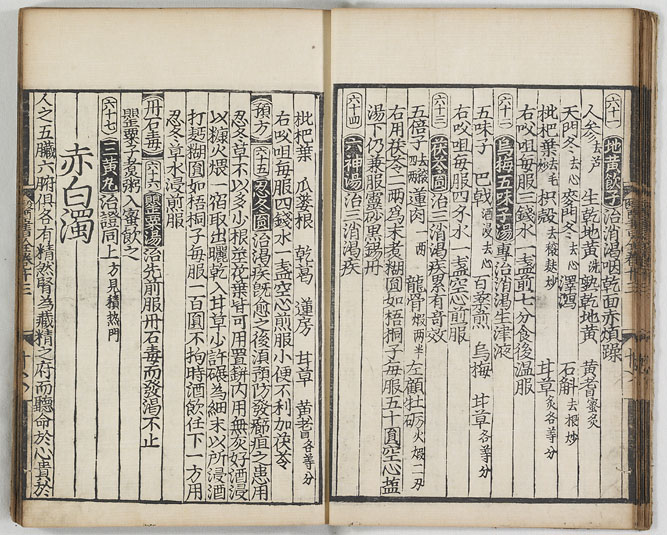 六十一 地黃飲子 治消渴咽乾面赤煩躁
人參去芦 生乾地黃洗 熟乾地黃 黃耆蜜炙
天門冬去心 麥門冬去心 澤瀉 石斛去根炒
枇杷葉去毛炒 枳殼去穰麩炒 甘草炙各等分
右㕮咀每服三錢水一盞煎七分食後温服
六十二 烏梅五味子湯 專治消渴生津液
五味子 巴戟酒浸去心 百藥煎 烏梅 甘草各等分
右㕮咀每服四錢水一盞空心煎服
六十三 茯苓圓 治三消渴疾累有奇效
五倍子 蓮肉一两 龍骨煅两半 左顧牡礪火煅一两
右用茯苓二两爲末煮糊圓如梧桐子每服五十圓空心盐
湯下仍兼服靈砂黑錫丹
六十四 六神湯 治三消渴疾
枇杷葉 瓜蔞根 乾葛 蓮房 甘草 黃耆各等分
右㕮咀每服四錢水一盞空心煎服小便不利加茯苓
預方 六十五 忍冬圓 治渴疾既愈之後須預防發癰疽之患用
忍冬草不以多少根莖花葉皆可用置缾内用無灰好酒浸
以糠火煨一宿取出曬乾入甘草少許碾爲細末以所浸酒
打麪糊圓如梧桐子每服一百圓不拘時酒飲任下一方用
忍冬草水浸煎服
丹石毒 六十六 罌粟湯 治先前服丹石毒而發渴不止
罌粟子煮粥入蜜飲之
六十七 三黃丸 治證同上方見積熱門
赤白濁
人之五臟六腑俱各有精然腎爲藏精之府而聽命於心貴於